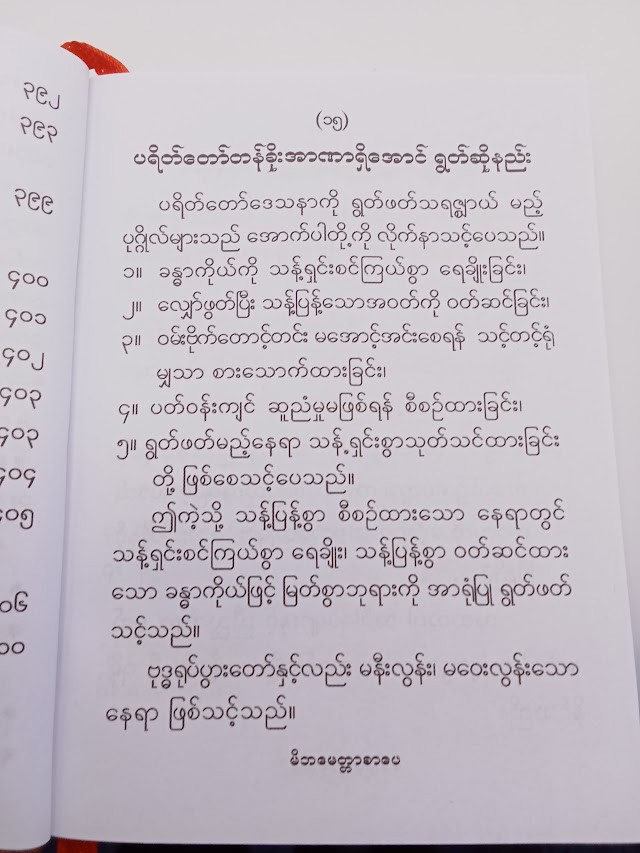 ၃၉၂
၃၉၃
၃၉၉
၄၀၀
၄၀၁
၄၀၂
၄၀၃
၄၀၃
၄၀၄
၄၀၅
၀၆
၁၀
(၁၅)
ပရိတ်တော်တန်ခိုးအာဏာရှိအောင် ရွတ်ဆိုနည်း
ပရိတ်တော်ဒေသနာကို ရွတ်ဖတ်သရဇ္ဈာယ် မည့်
ပုဂ္ဂိုလ်များသည် အောက်ပါတို့ကို လိုက်နာသင့်ပေသည်။
၁။ ခန္ဓာကိုယ်ကို သန့်ရှင်းစင်ကြယ်စွာ ရေချိုးခြင်း၊
၂။ လျှော်ဖွတ်ပြီး သန့်ပြန့်သောအဝတ်ကို ဝတ်ဆင်ခြင်း၊
၃။ ဝမ်းဗိုက်တောင့်တင်း မအောင့်အင်းစေရန် သင့်တင့်ရုံ
မျှသာ စားသောက်ထားခြင်း၊
၄။ ပတ်ဝန်းကျင် ဆူညံမှုမဖြစ်ရန် စီစဉ်ထားခြင်း၊
၅။ ရွတ်ဖတ်မည့်နေရာ သန့်ရှင်းစွာသုတ်သင်ထားခြင်း
တို့ ဖြစ်စေသင့်ပေသည်။
ဤကဲ့သို့ သန့်ပြန့်စွာ စီစဉ်ထားသော နေရာတွင်
သန့်ရှင်းစင်ကြယ်စွာ ရေချိုး၊ သန့်ပြန့်စွာ ဝတ်ဆင်ထား
သော ခန္ဓာကိုယ်ဖြင့် မြတ်စွာဘုရားကို အာရုံပြု ရွတ်ဖတ်
သင့်သည်။
ဗုဒ္ဓရုပ်ပွားတော်နှင့်လည်း မနီးလွန်း၊ မဝေးလွန်းသော
နေရာ ဖြစ်သင့်သည်။
မိဘမေတ္တာစာပေ